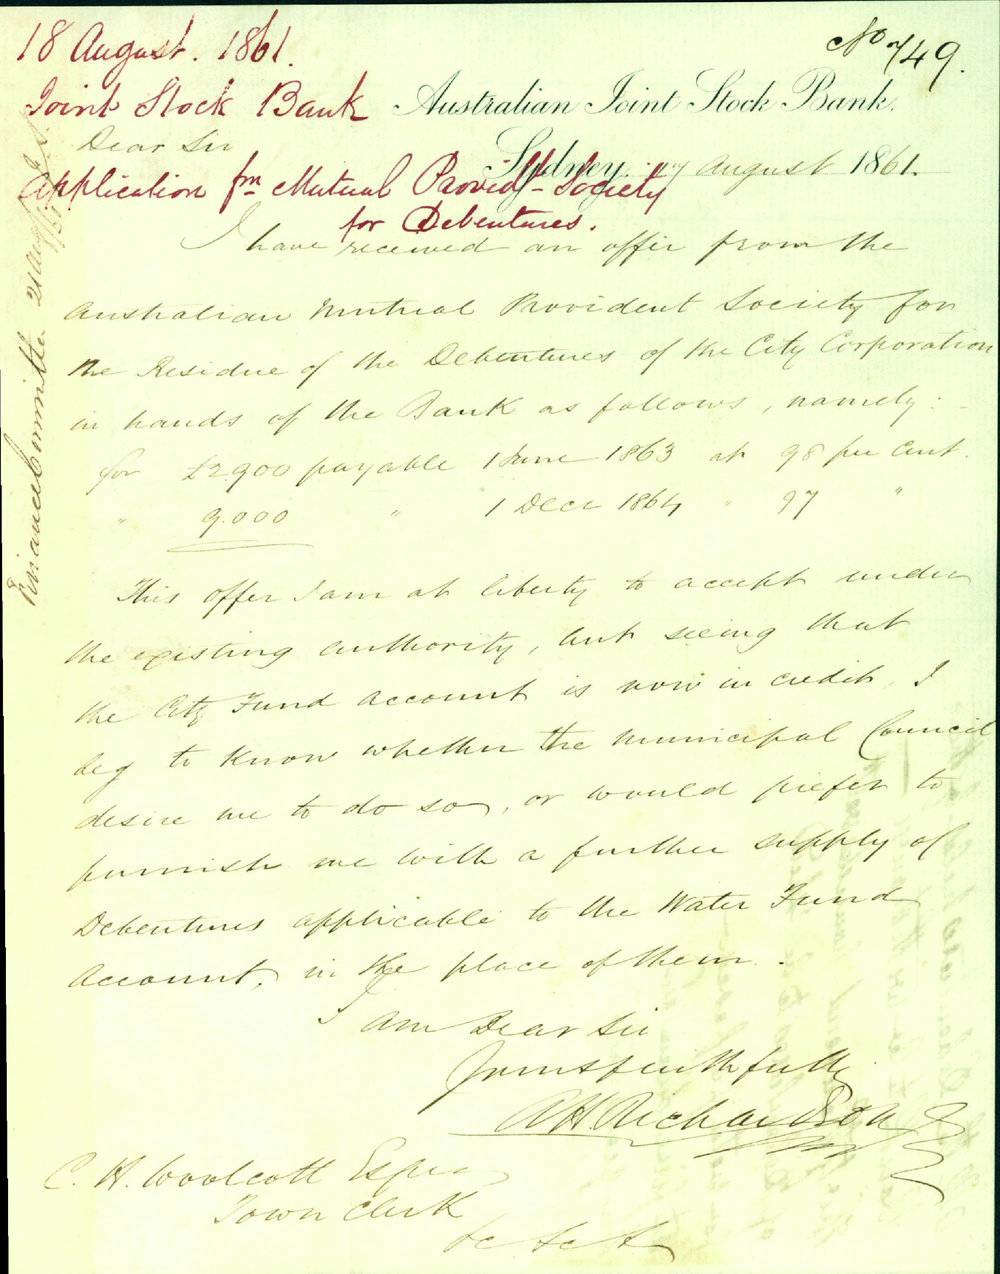 18 August. 1861.
No 749.
Joint Stock Bank
Australian Joint Stock Bank.
Dear Sir
Sydney, August 1861.
Application fm Mutual Providt Society
for Debentures.
I have received an offer from the
Australian Mutual Provident Society for
the Residue of the Debentures of the City Corporation
in hands of the Bank as follows, namely:
for £2900 payable 1 June 1863 at 98 per cent.
" 9.000 " 1 Decr 1864 " 97 "
This offer I am at liberty to accept under
the existing authority, but seeing that
the City Fund Account is now in credit, I
beg to know whether the Municipal Council
desire me to do so, or would prefer to
furnish me with a further supply of
Debentures applicable to the Water Fund
Account, in the place of them.
I am Dear Sir
Yours faithfully
A H Richardson
C. H. Woolcott Esqre
Town Clerk
&c &c &c
Finance Committee 21 Aug/61